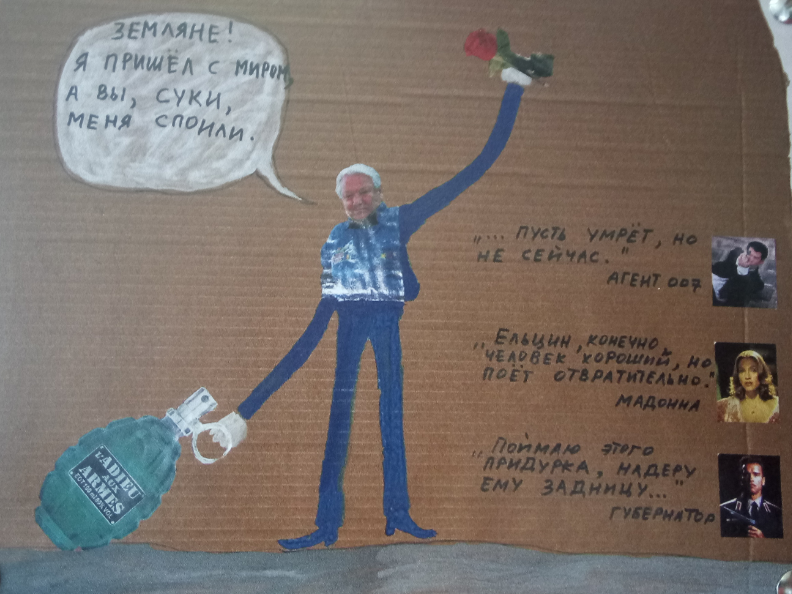 ЗЕМЛЯНЕ!
Я ПРИШЁЛ С МИРОМ,
А ВЫ, СУКИ,
МЕНЯ СПОИЛИ.
„... ПУСТЬ УМРЁТ, НО
НЕ СЕЙЧАС."
АГЕНТ 007
„ЕЛЬЦИН, КОНЕЧНО,
ЧЕЛОВЕК ХОРОШИЙ, НО
ПОЁТ ОТВРАТИТЕЛЬНО."
МАДОННА
„ПОЙМАЮ ЭТОГО
ПРИДУРКА, НАДЕРУ
ЕМУ ЗАДНИЦУ..."
ГУБЕРНАТОР
L'ADIEU
AUX
ARMES